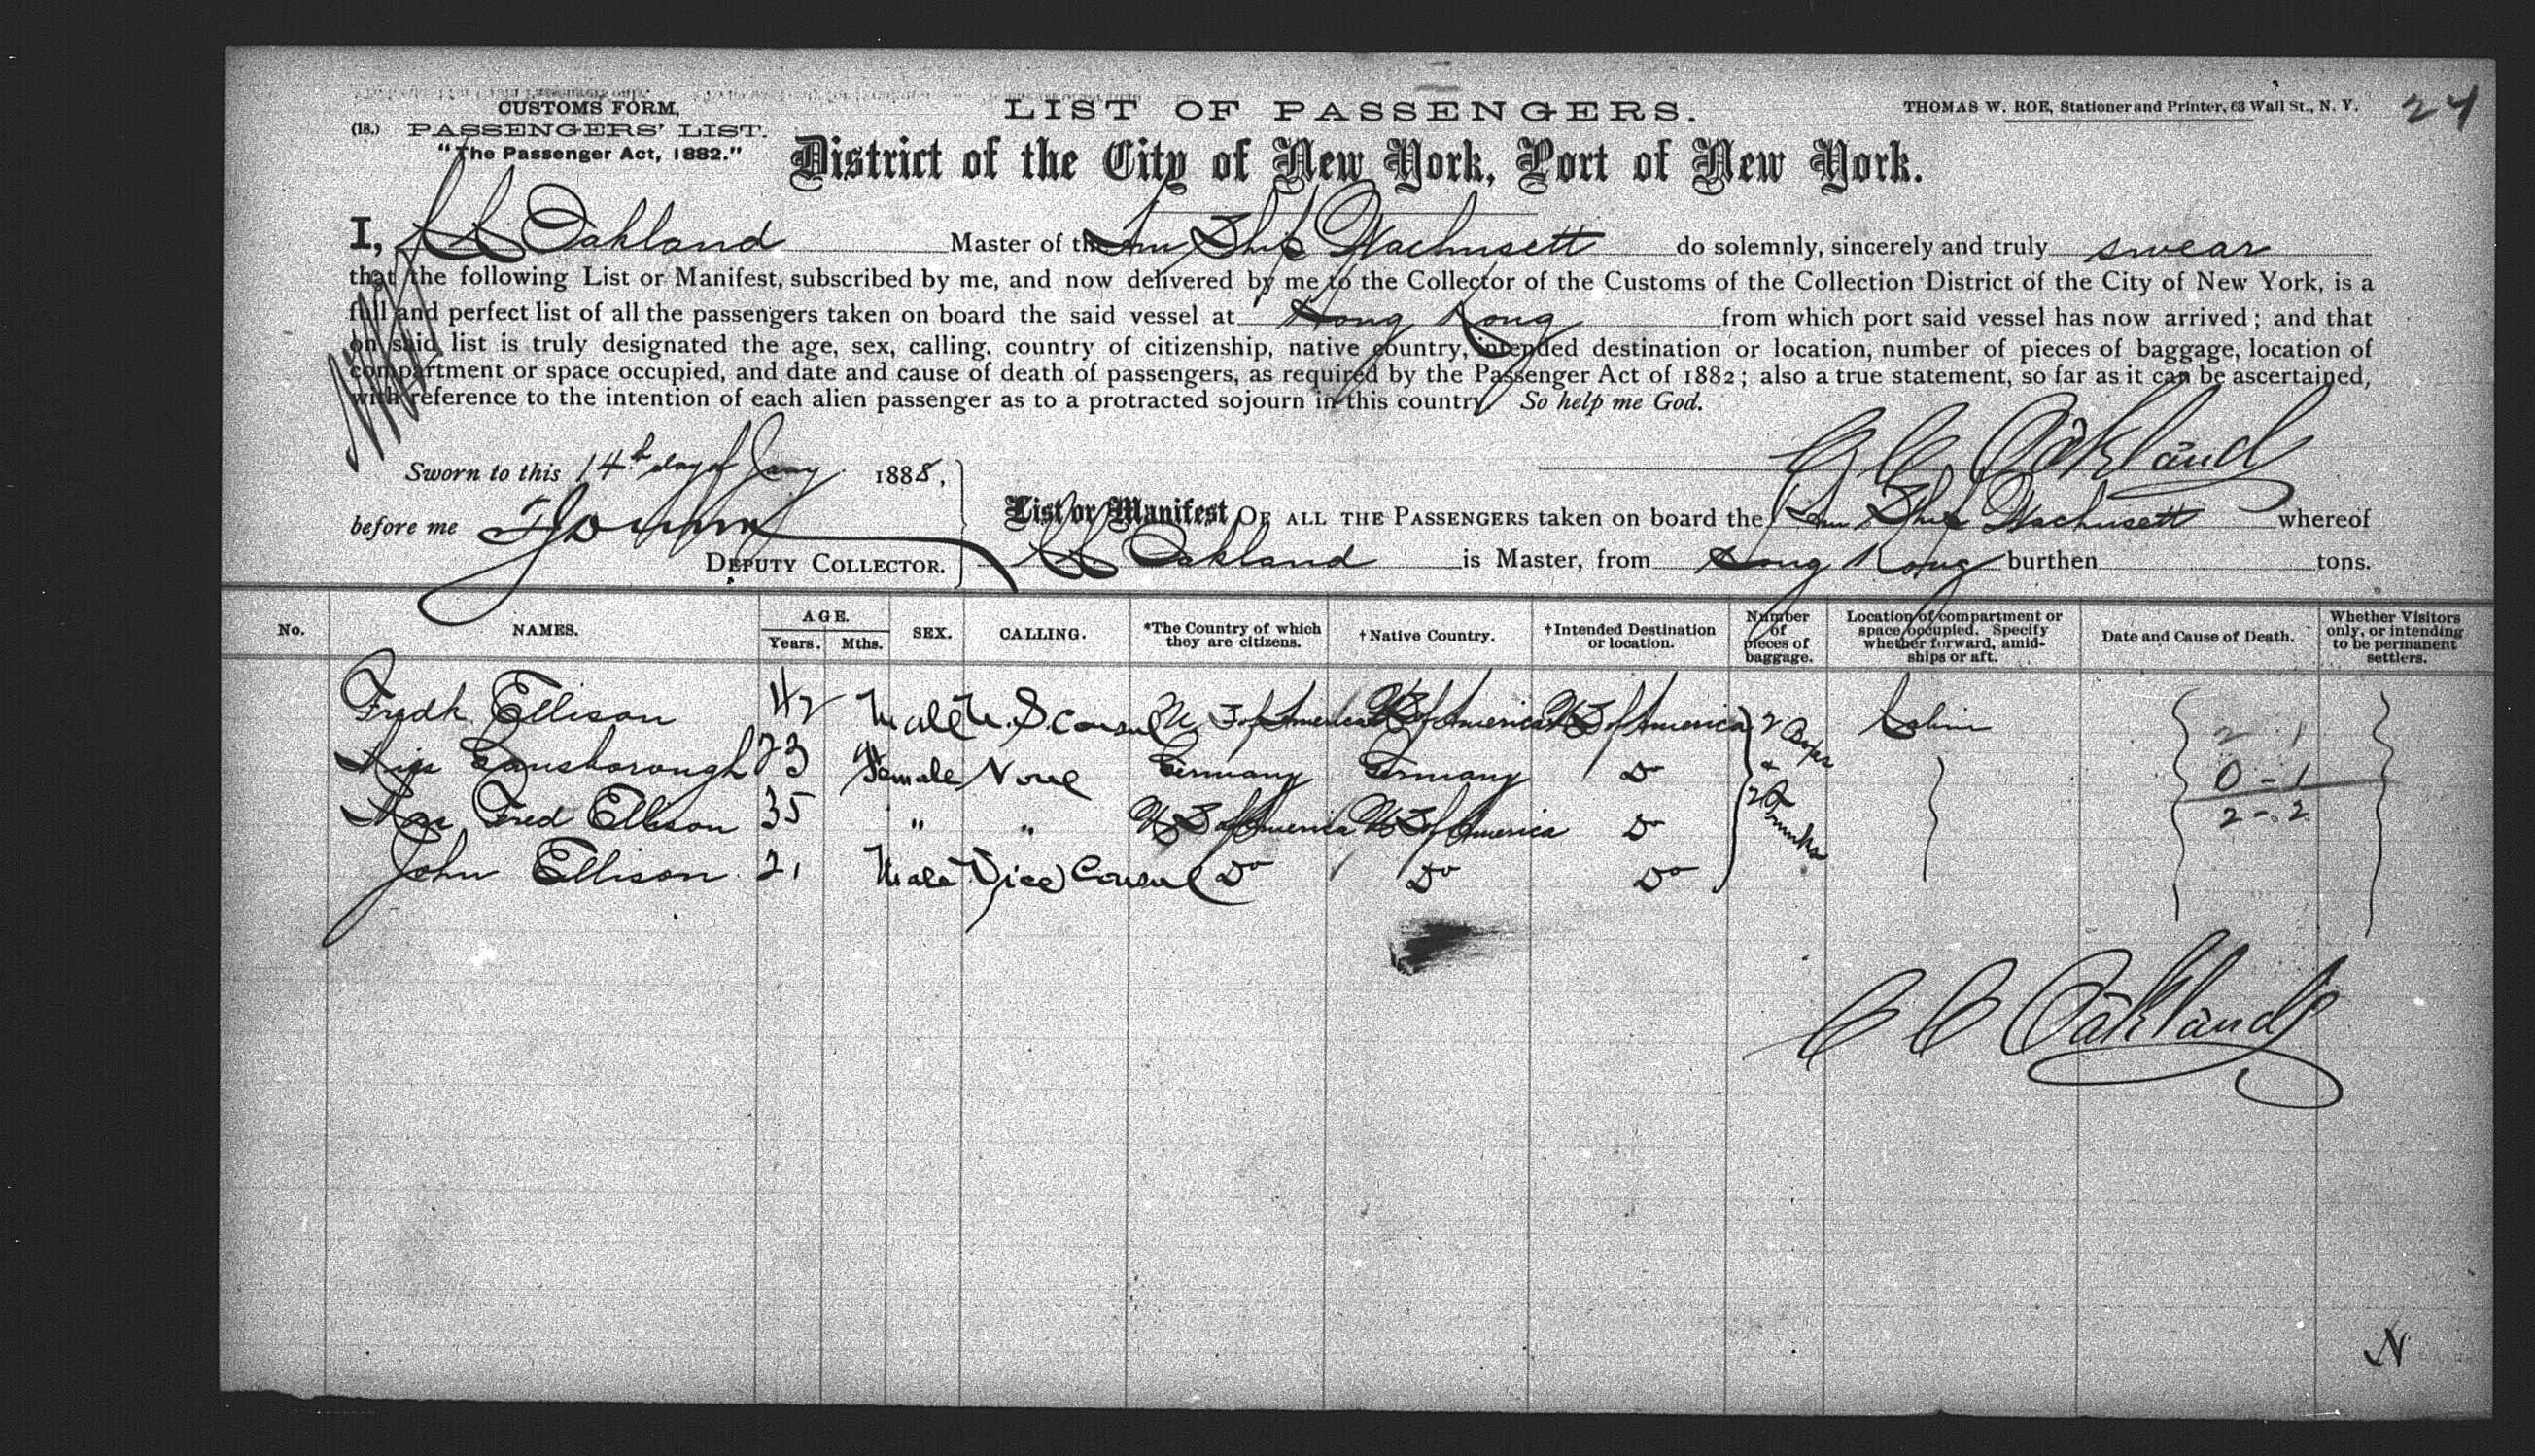 CUSTOMS FORM,
(18.) PASSENGERS' LIST.
"The Passenger Act, 1882."
LIST OF PASSENGERS.
THOMAS W. ROE, Stationer and Printer, 63 Wall St., N. Y.
24
District of the City of New York, Port of New York.
I, Oakland Master of the Am Ship Wachusett do solemnly, sincerely and truly swear
that the following List or Manifest, subscribed by me, and now delivered by me to the Collector of the Customs of the Collection District of the City of New York, is a
full and perfect list of all the passengers taken on board the said vessel at Hong Kong from which port said vessel has now arrived; and that
on said list is truly designated the age, sex, calling, country of citizenship, native country, intended destination or location, number of pieces of baggage, location of
compartment or space occupied, and date and cause of death of passengers, as required by the Passenger Act of 1882; also a true statement, so far as it can be ascertained,
with reference to the intention of each alien passenger as to a protracted sojourn in this country. So help me God.
C C Oakland
Sworn to this 14th day of Jany 1888,
before me
DEPUTY COLLECTOR.
List or Manifest OF ALL THE PASSENGERS taken on board the Am Ship Wachusett whereof
Oakland is Master, from Hong Kong burthen tons.
No. NAMES. AGE. Years. Mths. SEX. CALLING. *The Country of which they are citizens. †Native Country. †Intended Destination or location. Number of pieces of baggage. Location of compartment or space occupied. Specify whether forward, amidships or aft. Date and Cause of Death. Whether Visitors only, or intending to be permanent settlers.
Fredk Ellison 42 Male U.S. Consul U S of America U S of America U S of America 2 Boxes Cabin 2 1
Miss Gansborough 23 Female None Germany Germany Do & 0 - 1
Mrs Fred Ellison 35 " " U S of America U S of America Do 2 Trunks 2 - 2
John Ellison 21 Male Vice Consul Do Do Do
C C Oakland
N